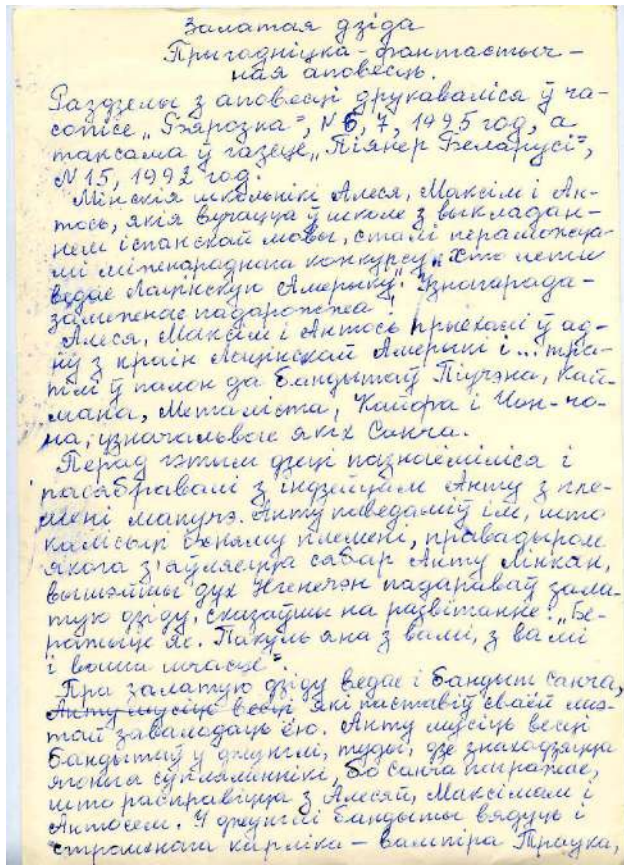 Залатая дзіда
Прыгодніцка-фантастыч-
ная аповесць.
Раздзелы з аповесці друкаваліся ў ча-
сопісе „Бярозка“, N 6, 7, 1995 год, а
таксама ў газеце „Піянер Беларусі“,
N 15, 1992 год.
Мінскія школьнікі Алеся, Максім і Ан-
тось, якія вучацца ў школе з выкладан-
нем іспанскай мовы, сталі пераможца-
мі міжнароднага конкурсу „Хто лепш
ведае Лацінскую Амерыку“. Узнагарада-
замежнае падарожжа.
Алеся, Максім і Антось прыехалі ў ад-
ну з краін Лацінскай Амерыкі і... тра-
пілі ў палон да бандытаў Піучэна, Кай-
мана, Металіста, Кайфа і Чон-чо-
на, узначальвае якіх Санча.
Перад гэтым дзеці пазнаёміліся і
пасябравалі з індзейцам Анту з пле-
мені мапучэ. Анту паведаміў ім, што
калісьці іхняму племені, правадыром
якога з'яўляецца сябар Анту Лінкан,
вышэйшы дух Нгенечэн падараваў зала-
тую дзіду, сказаўшы на развітанне: „Бе-
ражыце яе. Пакуль яна з вамі, з вамі
і ваша шчасце“.
Пра залатую дзіду ведае і бандыт Санча,
Анту мусіць весці які паставіў сваёй мэ-
тай завалодаць ёю. Анту мусіць весці
бандытаў у джунглі, туды, дзе знаходзяцца
ягоныя супляменнікі, бо Санча пагражае,
што расправіцца з Алесяй, Максімам і
Антосем. У джунглі бандыты вядуць і
страшнага карліка - вампіра Траука,